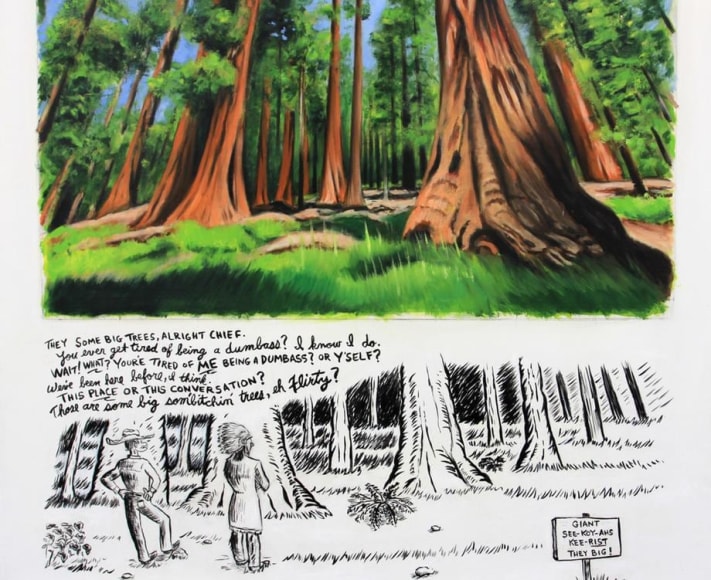 THEY SOME BIG TREES, ALRIGHT CHIEF.
You ever get tired of being a dumbass? I know I do.
WAIT! WHAT? YOU'RE TIRED OF ME BEING A DUMBASS? OR Y'SELF?
We've been here before, I think.
THIS PLACE OR THIS CONVERSATION?
Those are some big sombitchin' trees, eh Flirty?
GIANT
SEE-KOY-AHS
KEE-RIST
THEY BIG!